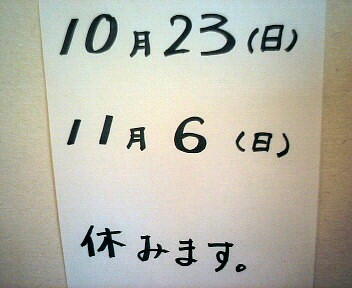 10月23(日)
11月6(日)
休みます。